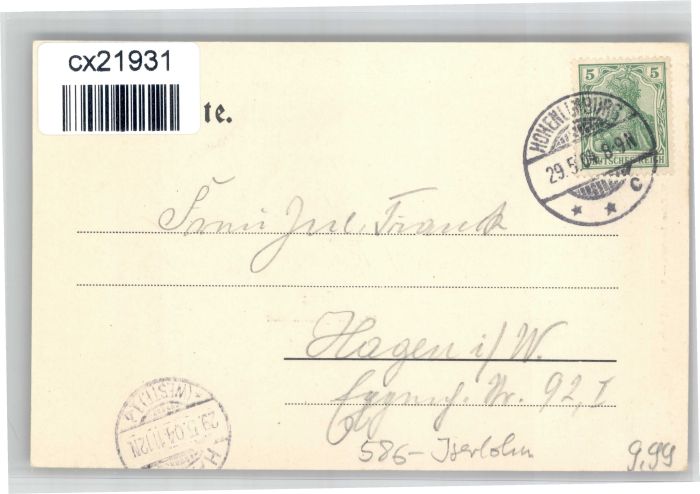 cx21931
te.
5 5
DEUTSCHES REICH
HOHENLIMBURG
29.5.04 8-9N
* * c
Frau Jul. Franck
Hagen i/W.
Nr. 92, I
(WESTF.)
29.5.04 11-12N
586- Iserlohn
9,99